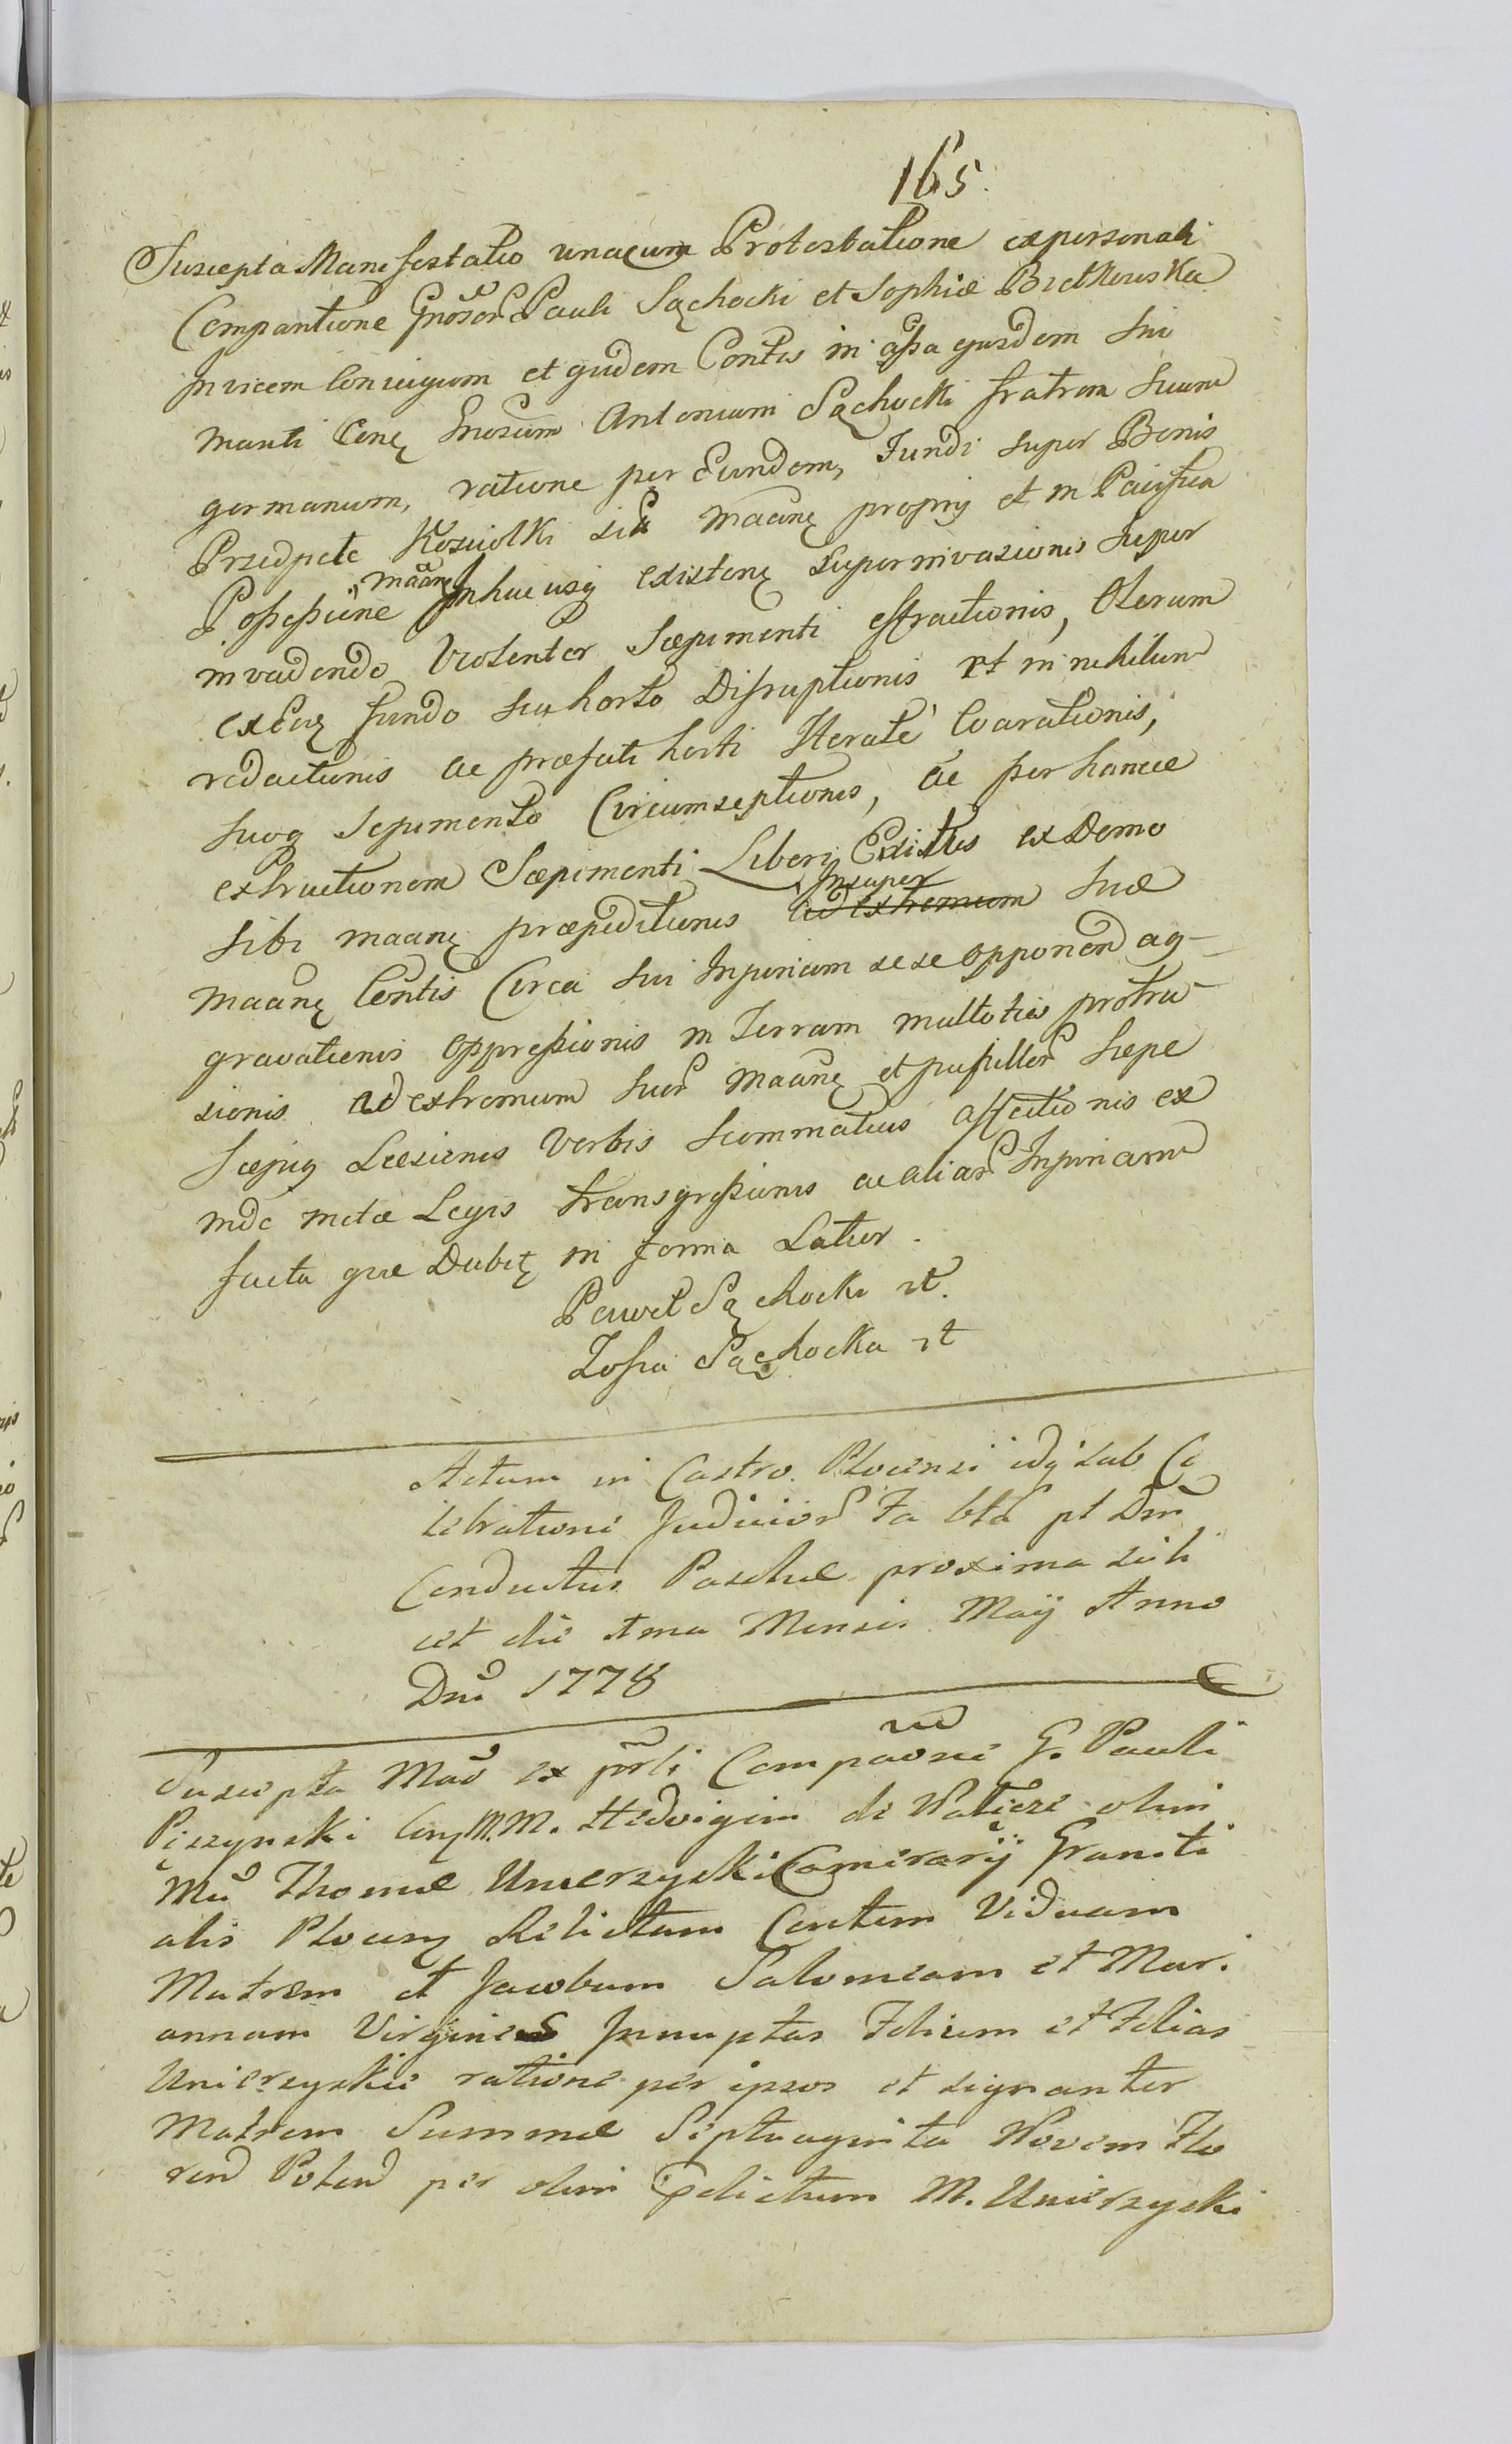 165.
Suscepta Manifestatio unacum Protestatione ex personali
Comparitione Gnosor Pauli Sąchocki et Sophiæ Bretkowska
Invicem Conjugum et quidem Contis in assa ejusdem sui
Mariti Conq Gnosum Antonium Sąchocki fratrem suum
germanum, ratione per Eundem, Fundi super Bonis
Przedpełe Kosciołki sic maanq proprij et in Pacifica
Possessione maane inhucusq existenq superinvasionis super
invadendo Violenter Sæpimenti effractionis, Olerum
ex Eoq fundo seu horto Disruptionis et in nihilum
redactionis ac præfati horti Iterate Coarationis,
suoq Sepimento Circumseptionis, ac per hancce
extructionem Sæpimenti Liberi Exitus ex Domo
sibi maanq præpeditionis Insuper ad extremum suæ
maanq Contis Circa sui Injuriam sese opponend ag-
gravationis oppressionis in Terram multoties protru-
sionis ad extremum suor maanq et pusillor sæpe
sæpiq Læsionis Verbis scommaticis affectionis ex
inde metæ Legis transgressionis ac aliar Injuriarum
facta quæ Dubit in forma Latior.
Paweł Sąchocki rt.
Zofia Sąchocka rt
Actum in Castro Plocensi idq sub Ce
lebratione Judicior Fa bta pt Dm
Conductus Paschæ proxima scili
cet die 1ma Mensis Maij Anno
Dni 1778
Suscepta Mao ex psrli Compaone G. Pauli
Pięczynski Conq M.M. Hedvigim de Natięcz olim
Mci Thomæ Unierzyski Camerarij Graniti
alis Plocenq Relictam Contem Viduam
Matrem et Jacobum Salomeam et Mari
annam Virgines Innuptas Filium et Filias
Unierzyskie ratione per ipsos et signanter
Matrem Summæ Septuaginta Novem Flo
ren Polon per olim relictum M. Unierzyski